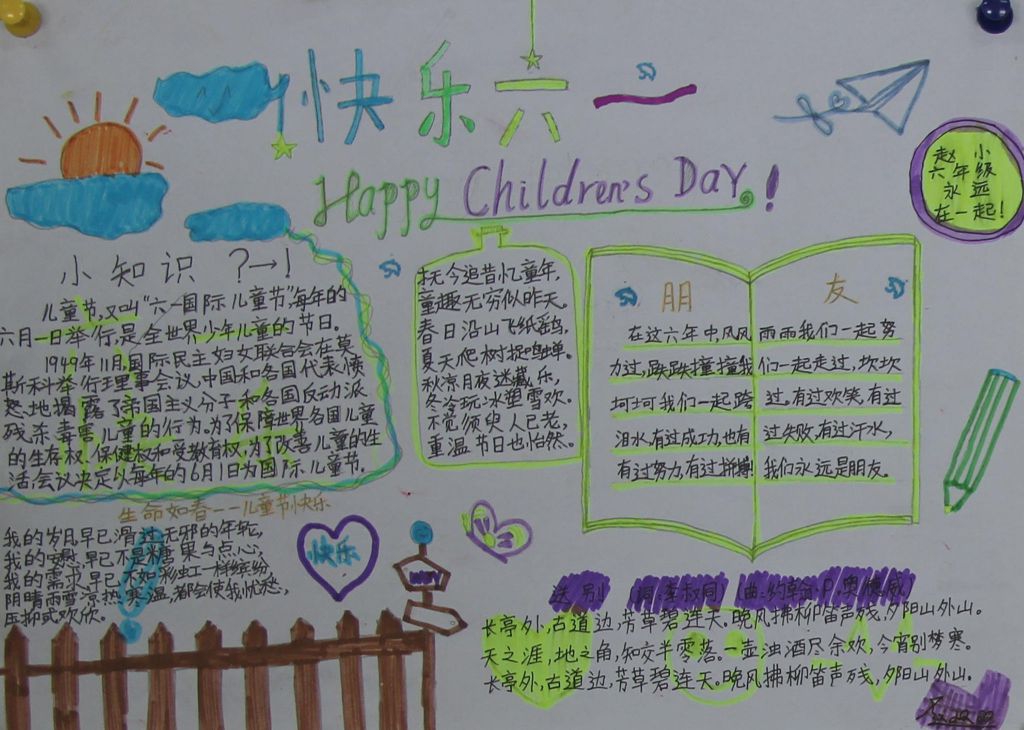 快乐六一
Happy Children's Day!
赵小
六年级
永远
在一起!
小知识 ?→!
儿童节,又叫“六一国际儿童节”,每年的
六月一日举行,是全世界少年儿童的节日。
1949年11月,国际民主妇女联合会在莫
斯科举行理事会议,中国和各国代表愤
怒地揭露了帝国主义分子和各国反动派
残杀毒害儿童的行为。为了保障世界各国儿童
的生存权、保健权和受教育权,为了改善儿童的生
活,会议决定以每年的6月1日为国际儿童节。
抚今追昔忆童年,
童趣无穷似昨天。
春日沿山飞纸鹞,
夏天爬树捉鸣蝉。
秋凉月夜迷藏乐,
冬冷玩冰塑雪欢。
不觉须臾人已老,
重温节日也怡然。
朋友
在这六年中,风风雨雨我们一起努
力过,跌跌撞撞我们一起走过,坎坎
坷坷我们一起跨过,有过欢笑,有过
泪水,有过成功,也有过失败,有过汗水,
有过努力,有过拼搏!我们永远是朋友。
生命如春——儿童节快乐
我的岁月,早已滑过无邪的年轮,
我的安慰,早已不是糖果与点心,
我的需求,早已不如彩虹一样缤纷
阴晴雨雪凉热寒温,都会使我忧愁,
压抑或欢欣。
快乐
WAY
送别 (词:李叔同) (曲:约翰·P.奥德威)
长亭外,古道边,芳草碧连天。晚风拂柳笛声残,夕阳山外山。
天之涯,地之角,知交半零落。一壶浊酒尽余欢,今宵别梦寒。
长亭外,古道边,芳草碧连天。晚风拂柳笛声残,夕阳山外山。